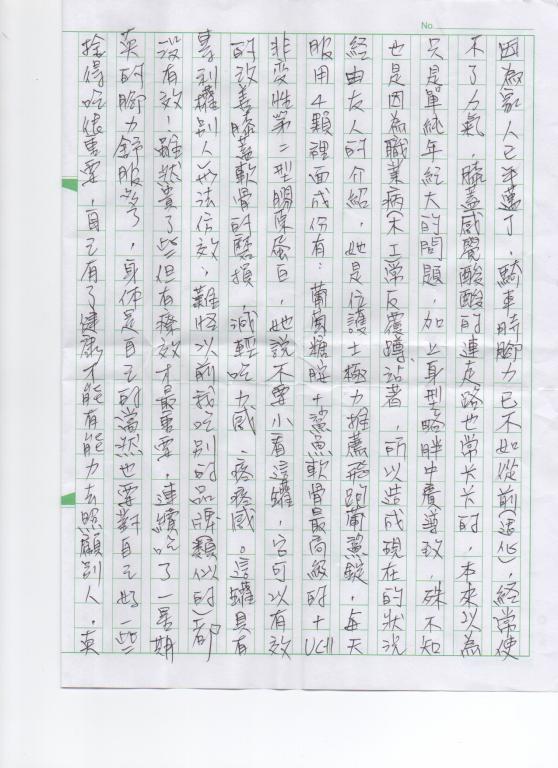 No.
因為家人已年邁了，騎車時腳力已不如從前(退化)，經常使
不了力氣，膝蓋感覺酸酸的連走路也常卡卡的，本來以為
只是單純年紀大的問題，加上身型略胖中廣導致，殊不知
也是因為職業病(木工常反覆蹲、站著，所以造成現在的狀況
經由友人的介紹，她是位護士極力推薦飛跑葡鯊錠，每天
服用4顆裡面成份有：葡萄糖胺+鯊魚軟骨最高級的+UCII
非變性第二型膠原蛋白，她說不要小看這罐，它可以有效
的改善膝蓋軟骨的磨損，減輕吃力感、疼痛感。這罐具有
專利權別人無法仿效，難怪以前我吃別的品牌類似的)都
沒有效，雖然貴了些但有療效才最重要，連續吃了一星期
英的腳力舒服多了，身体是自己的當然也要對自己好一些
捨得吃很重要，自己有了健康才能有能力去照顧別人，英